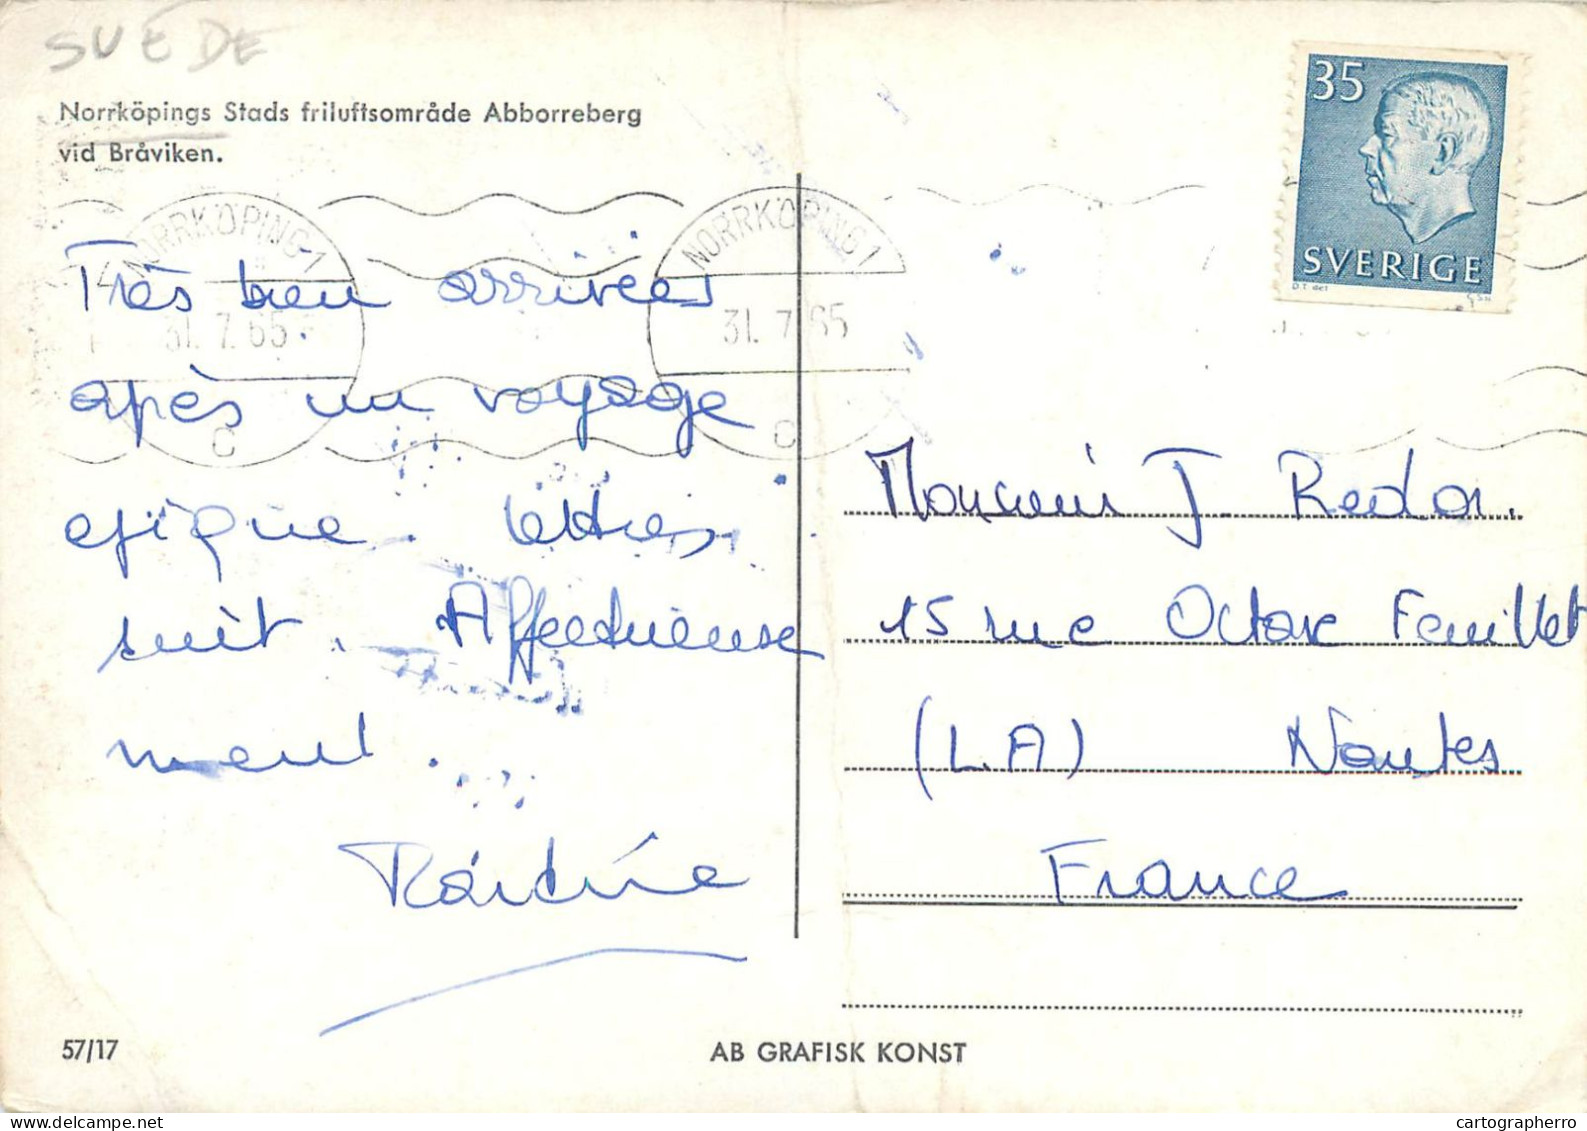 SUÈDE
Norrköpings Stads friluftsområde Abborreberg
vid Bråviken.
NORRKÖPING 1
31.7.65
C
NORRKÖPING 1
31.7 65
C
35
SVERIGE
D.T. del
Très bien arrivées
après un voyage
épique. Lettres
suit. Affectueuse
ment.
Monsieur J. Redor.
15 rue Octave Feuillet
(L.A) Nantes
France
57/17
AB GRAFISK KONST
cartographerro